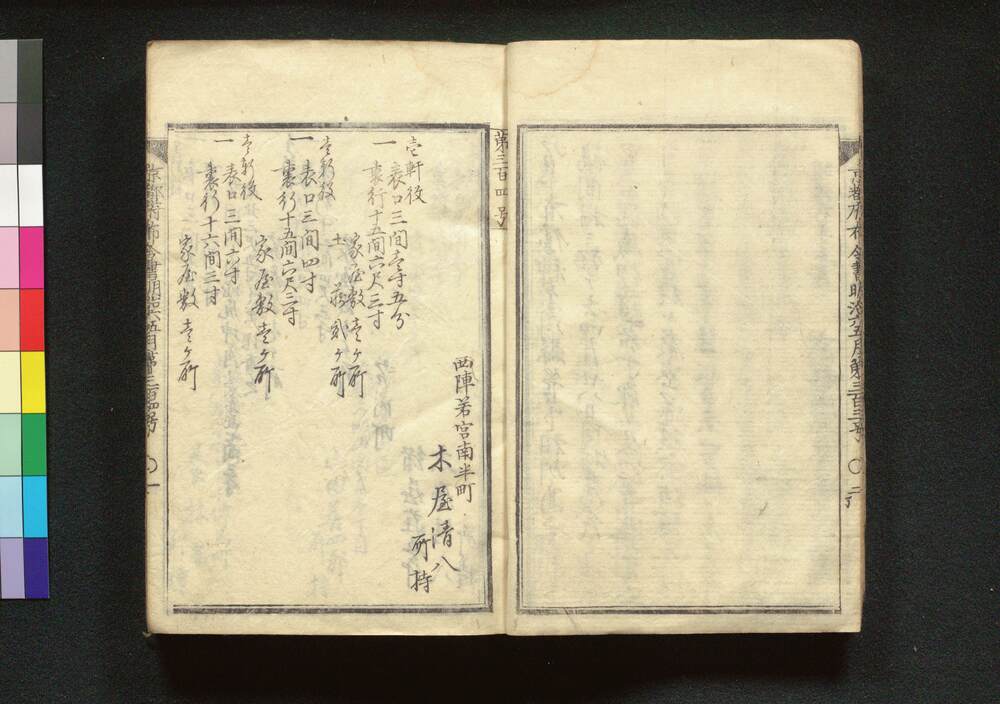 京都府布令書明治六五月第三百三号 〇二丁
第三百四号
西陣若宮南半町
木屋清八
所持
壱軒役
一 表口三間壱寸五分
裏行十五間六尺三寸
家屋数壱ケ所
土蔵弐ケ所
壱軒役
一 表口三間四寸
裏行十五間六尺三寸
家屋数壱ケ所
壱軒役
一 表口三間六寸
裏行十六間三寸
家屋数壱ケ所
京都府布令書明治六五月第三百四号 〇一